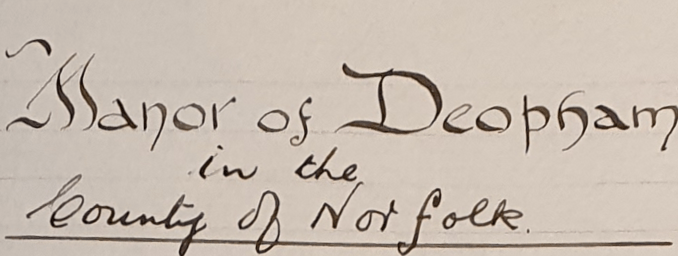 Manor of Deopham
in the
County of Norfolk.